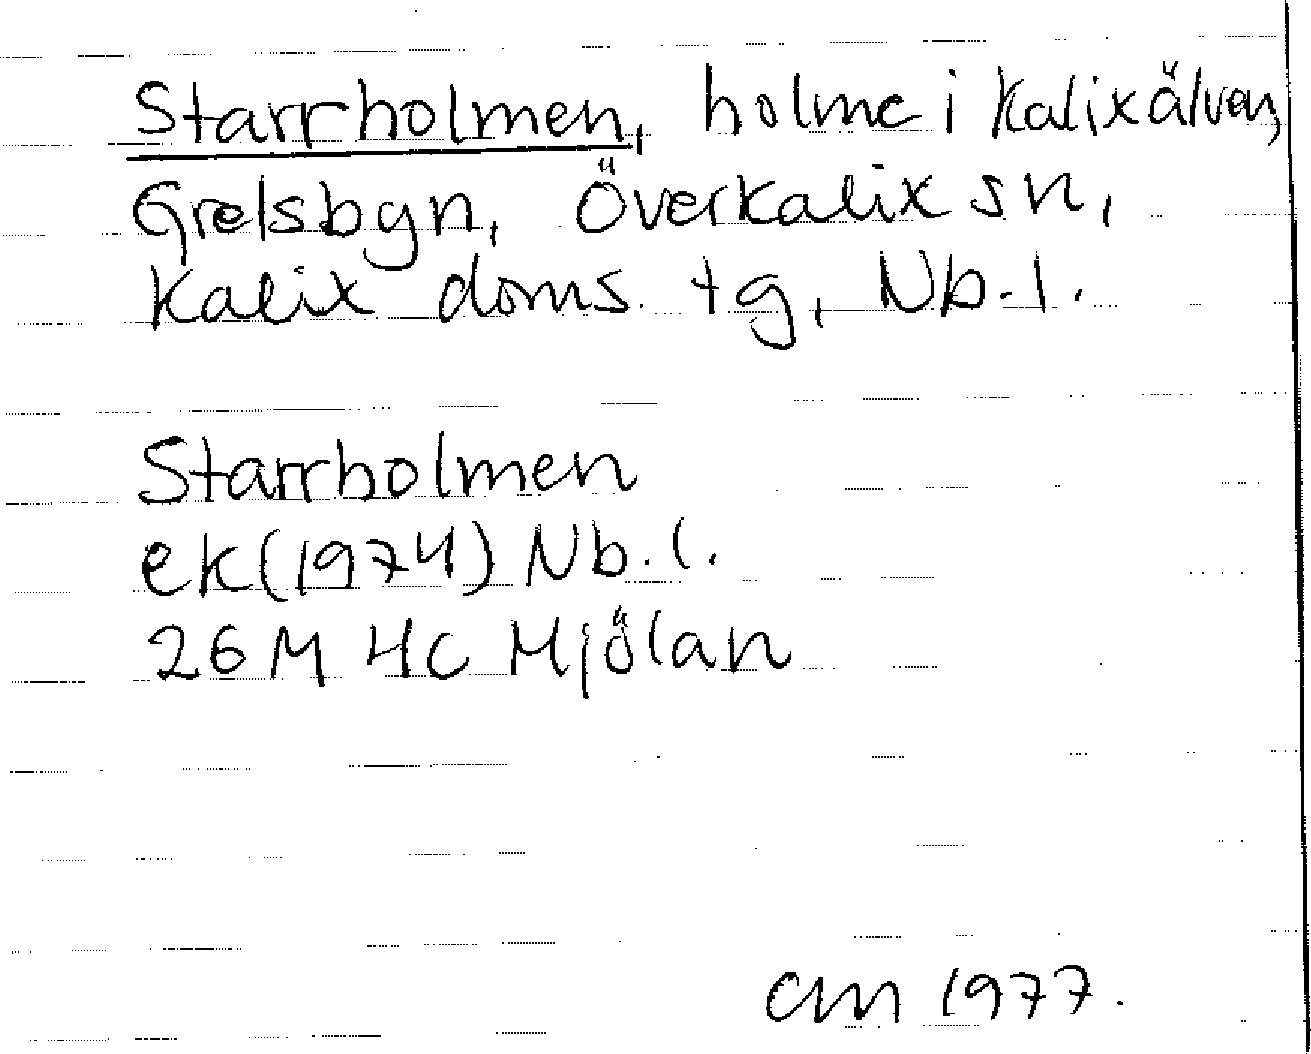 Starrholmen, holme i Kalixälven,
Grelsbyn, Överkalix sn,
Kalix doms. tg, Nb.l.
Starrholmen
ek (1974) Nb.l.
26 M 4c Mjölan
CM 1977.